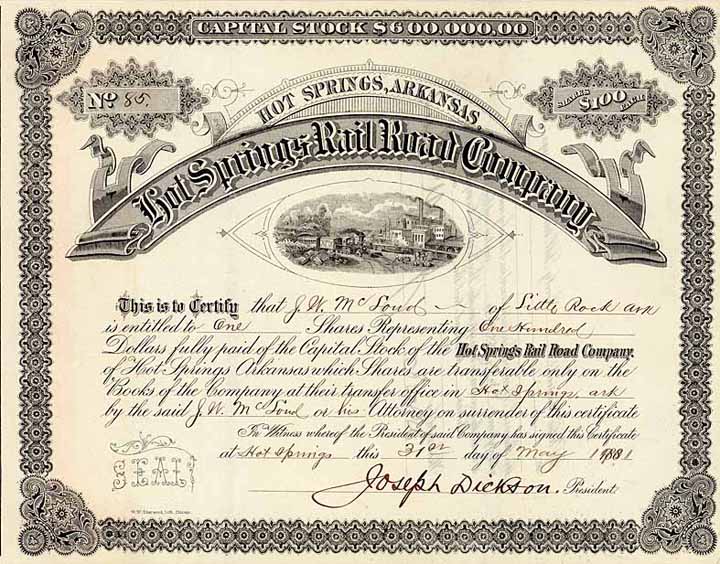 CAPITAL STOCK $600,000,00
No 85.
SHARES $100 EACH
HOT SPRINGS, ARKANSAS,
Hot Springs Rail Road Company
This is to Certify that J. W. McLoud of Little Rock Ark
is entitled to One Shares Representing One Hundred
Dollars fully paid of the Capital Stock of the Hot Springs Rail Road Company.
of Hot Springs Arkansas which Shares are transferable only on the
Books of the Company at their transfer office in Hot Springs, Ark
by the said J. W. McLoud or his Attorney on surrender of this certificate
In Witness whereof the President of said Company has signed this Certificate
at Hot Springs this 31st day of May 1881
Joseph Dickson. President.